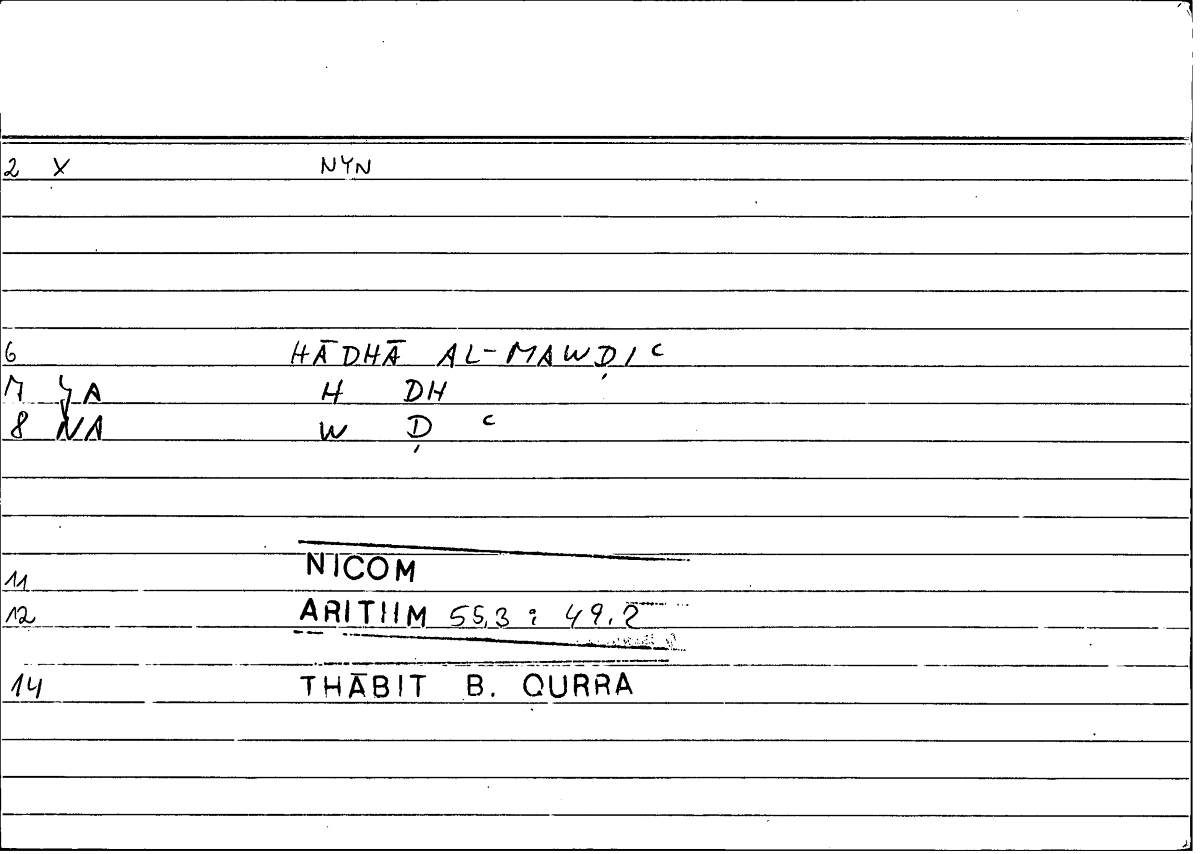 2 X NYN
6 HĀDHĀ AL-MAWḌIC
7 YA H DH
8 NA W Ḍ C
11 NICOM
12 ARITIIM 55,3 : 49.2
14 THĀBIT B. QURRA